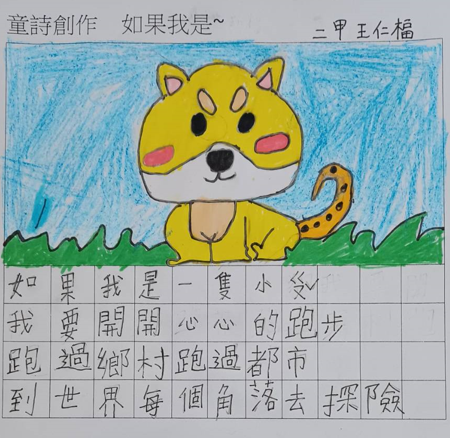 童詩創作 如果我是~
二甲 王仁
如果我是一隻小
我要開開心心的跑步
跑過鄉村跑過都市
到世界每個角落去探險